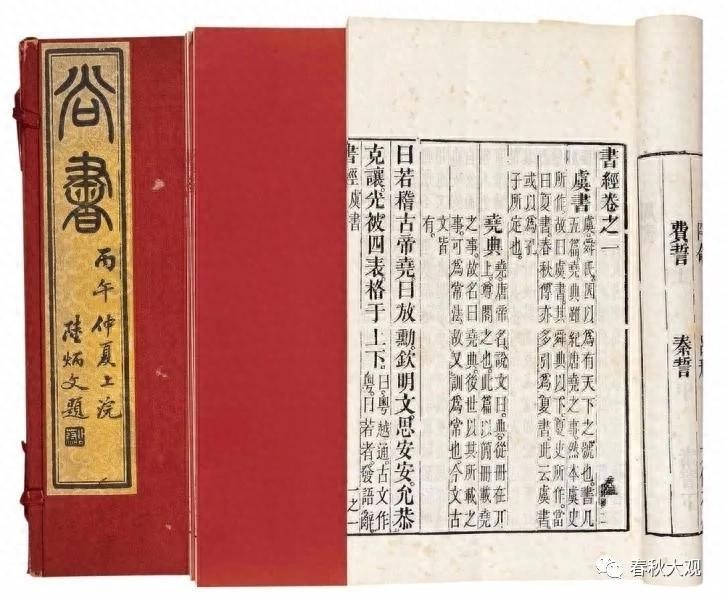 尚書
丙午仲夏上浣
陸炳文題
費誓
秦誓
書經卷之一
虞書
虞。舜氏。因以爲有天下之號也。書凡
五篇。堯典雖紀唐堯之事。然本虞史
所作。故曰虞書。其舜典以下。夏史所作。當
曰夏書。春秋傳亦多引爲夏書。此云虞書。
或以爲孔
子所定也。
堯典
堯。唐帝名。說文曰。典。從冊在丌
上。尊閣之也。此篇以簡冊載堯
之事。故名曰堯典。後世以其所載之
事。可爲常法。故又訓爲常也。今文古
文皆
有。
曰若稽古帝堯。曰放勳。欽明文思安安。允恭
克讓。光被四表。格于上下。
曰。粵越通。古文作
粵。曰若者。發語辭。
書經虞書
之一
春秋大观